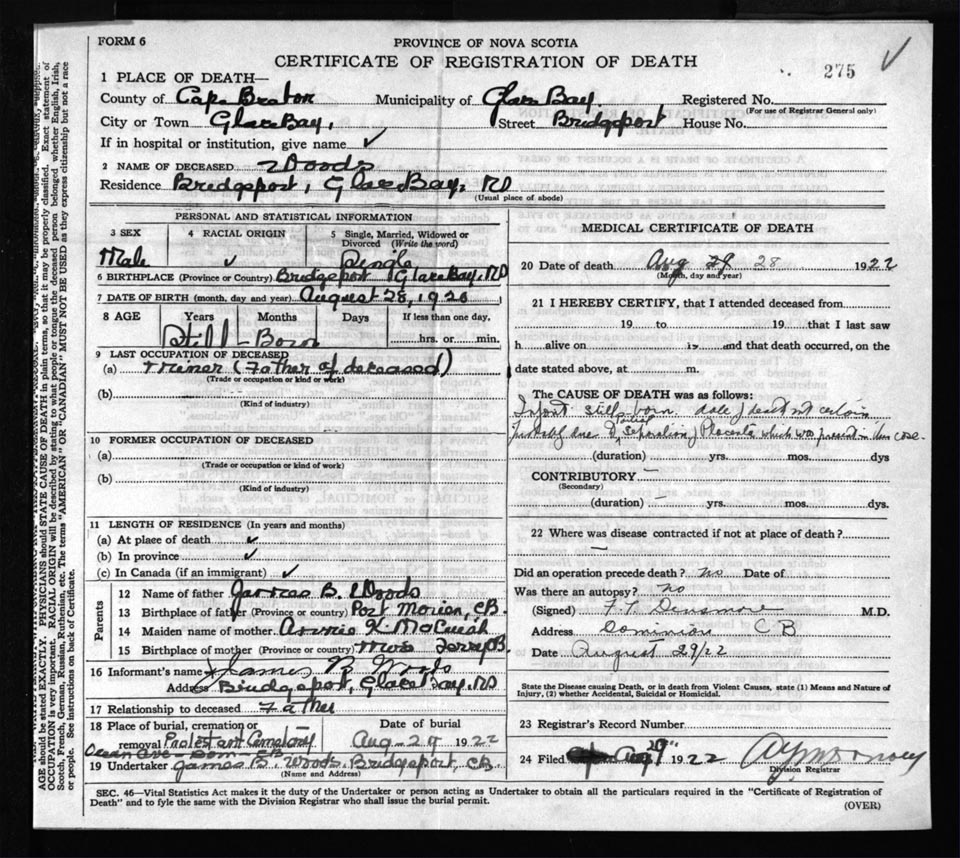 FORM 6
PROVINCE OF NOVA SCOTIA
CERTIFICATE OF REGISTRATION OF DEATH
275
1 PLACE OF DEATH—
County of Cape Breton Municipality of Glace Bay. Registered No.
(For use of Registrar General only)
City or Town Glace Bay, Street Bridgeport House No.
If in hospital or institution, give name ✓
2 NAME OF DECEASED Woods
Residence Bridgeport, Glace Bay, RD
(Usual place of abode)
PERSONAL AND STATISTICAL INFORMATION
3 SEX 4 RACIAL ORIGIN 5 Single, Married, Widowed or
Divorced (Write the word)
Male ✓ Single
6 BIRTHPLACE (Province or Country) Bridgeport Glace Bay, RD
7 DATE OF BIRTH (month, day and year) August 28, 1920
8 AGE Years Months Days If less than one day,
Still-Born hrs. or min.
9 LAST OCCUPATION OF DECEASED
(a) Miner (Father of deceased)
(Trade or occupation or kind of work)
(b)
(Kind of industry)
10 FORMER OCCUPATION OF DECEASED
(a)
(Trade or occupation or kind of work)
(b)
(Kind of industry)
11 LENGTH OF RESIDENCE (In years and months)
(a) At place of death ✓
(b) In province ✓
(c) In Canada (if an immigrant) ✓
Parents
12 Name of father James B. Woods
13 Birthplace of father (Province or country) Port Morien, CB.
14 Maiden name of mother Annie K.
15 Birthplace of mother (Province or country) Ferry B.
16 Informant's name James B Woods
Address Bridgeport, Glace Bay, RD
17 Relationship to deceased Father
18 Place of burial, cremation or Date of burial
removal Protestant Cemetery Aug-29 1922
Ocean Ave - Dom CB
19 Undertaker James B. Woods. Bridgeport, CB
(Name and Address)
MEDICAL CERTIFICATE OF DEATH
20 Date of death Aug 29 28 1922
(Month, day and year)
21 I HEREBY CERTIFY, that I attended deceased from
19 to 19 that I last saw
h alive on 19 and that death occurred, on the
date stated above, at m.
The CAUSE OF DEATH was as follows:
Infant still-born date of death not certain
Probably due to Partial Separation of Placenta which was present in this case.
(duration) yrs. mos. dys
CONTRIBUTORY —
(Secondary)
(duration) — yrs. mos. dys.
22 Where was disease contracted if not at place of death?
—
Did an operation precede death? no Date of
Was there an autopsy? no
(Signed) F. T. Densmore M.D.
Address Dominion CB
Date August 29/22
State the Disease causing Death, or in death from Violent Causes, state (1) Means and Nature of
Injury, (2) whether Accidental, Suicidal or Homicidal.
23 Registrar's Record Number
24 Filed Aug 29" 1922
Division Registrar
SEC. 46—Vital Statistics Act makes it the duty of the Undertaker or person acting as Undertaker to obtain all the particulars required in the "Certificate of Registration of
Death" and to fyle the same with the Division Registrar who shall issue the burial permit.
(OVER)
AGE should be stated EXACTLY. PHYSICIANS should STATE CAUSE OF DEATH in plain terms, so that it may be properly classified. Exact statement of
OCCUPATION is very important. RACIAL ORIGIN will be described by stating to what people or tongue the deceased person belonged whether English, Irish,
Scotch, French, German, Russian, Ruthenian, etc. The terms "AMERICAN" OR "CANADIAN" MUST NOT BE USED as they express citizenship but not a race
or people. See instructions on back of Certificate.